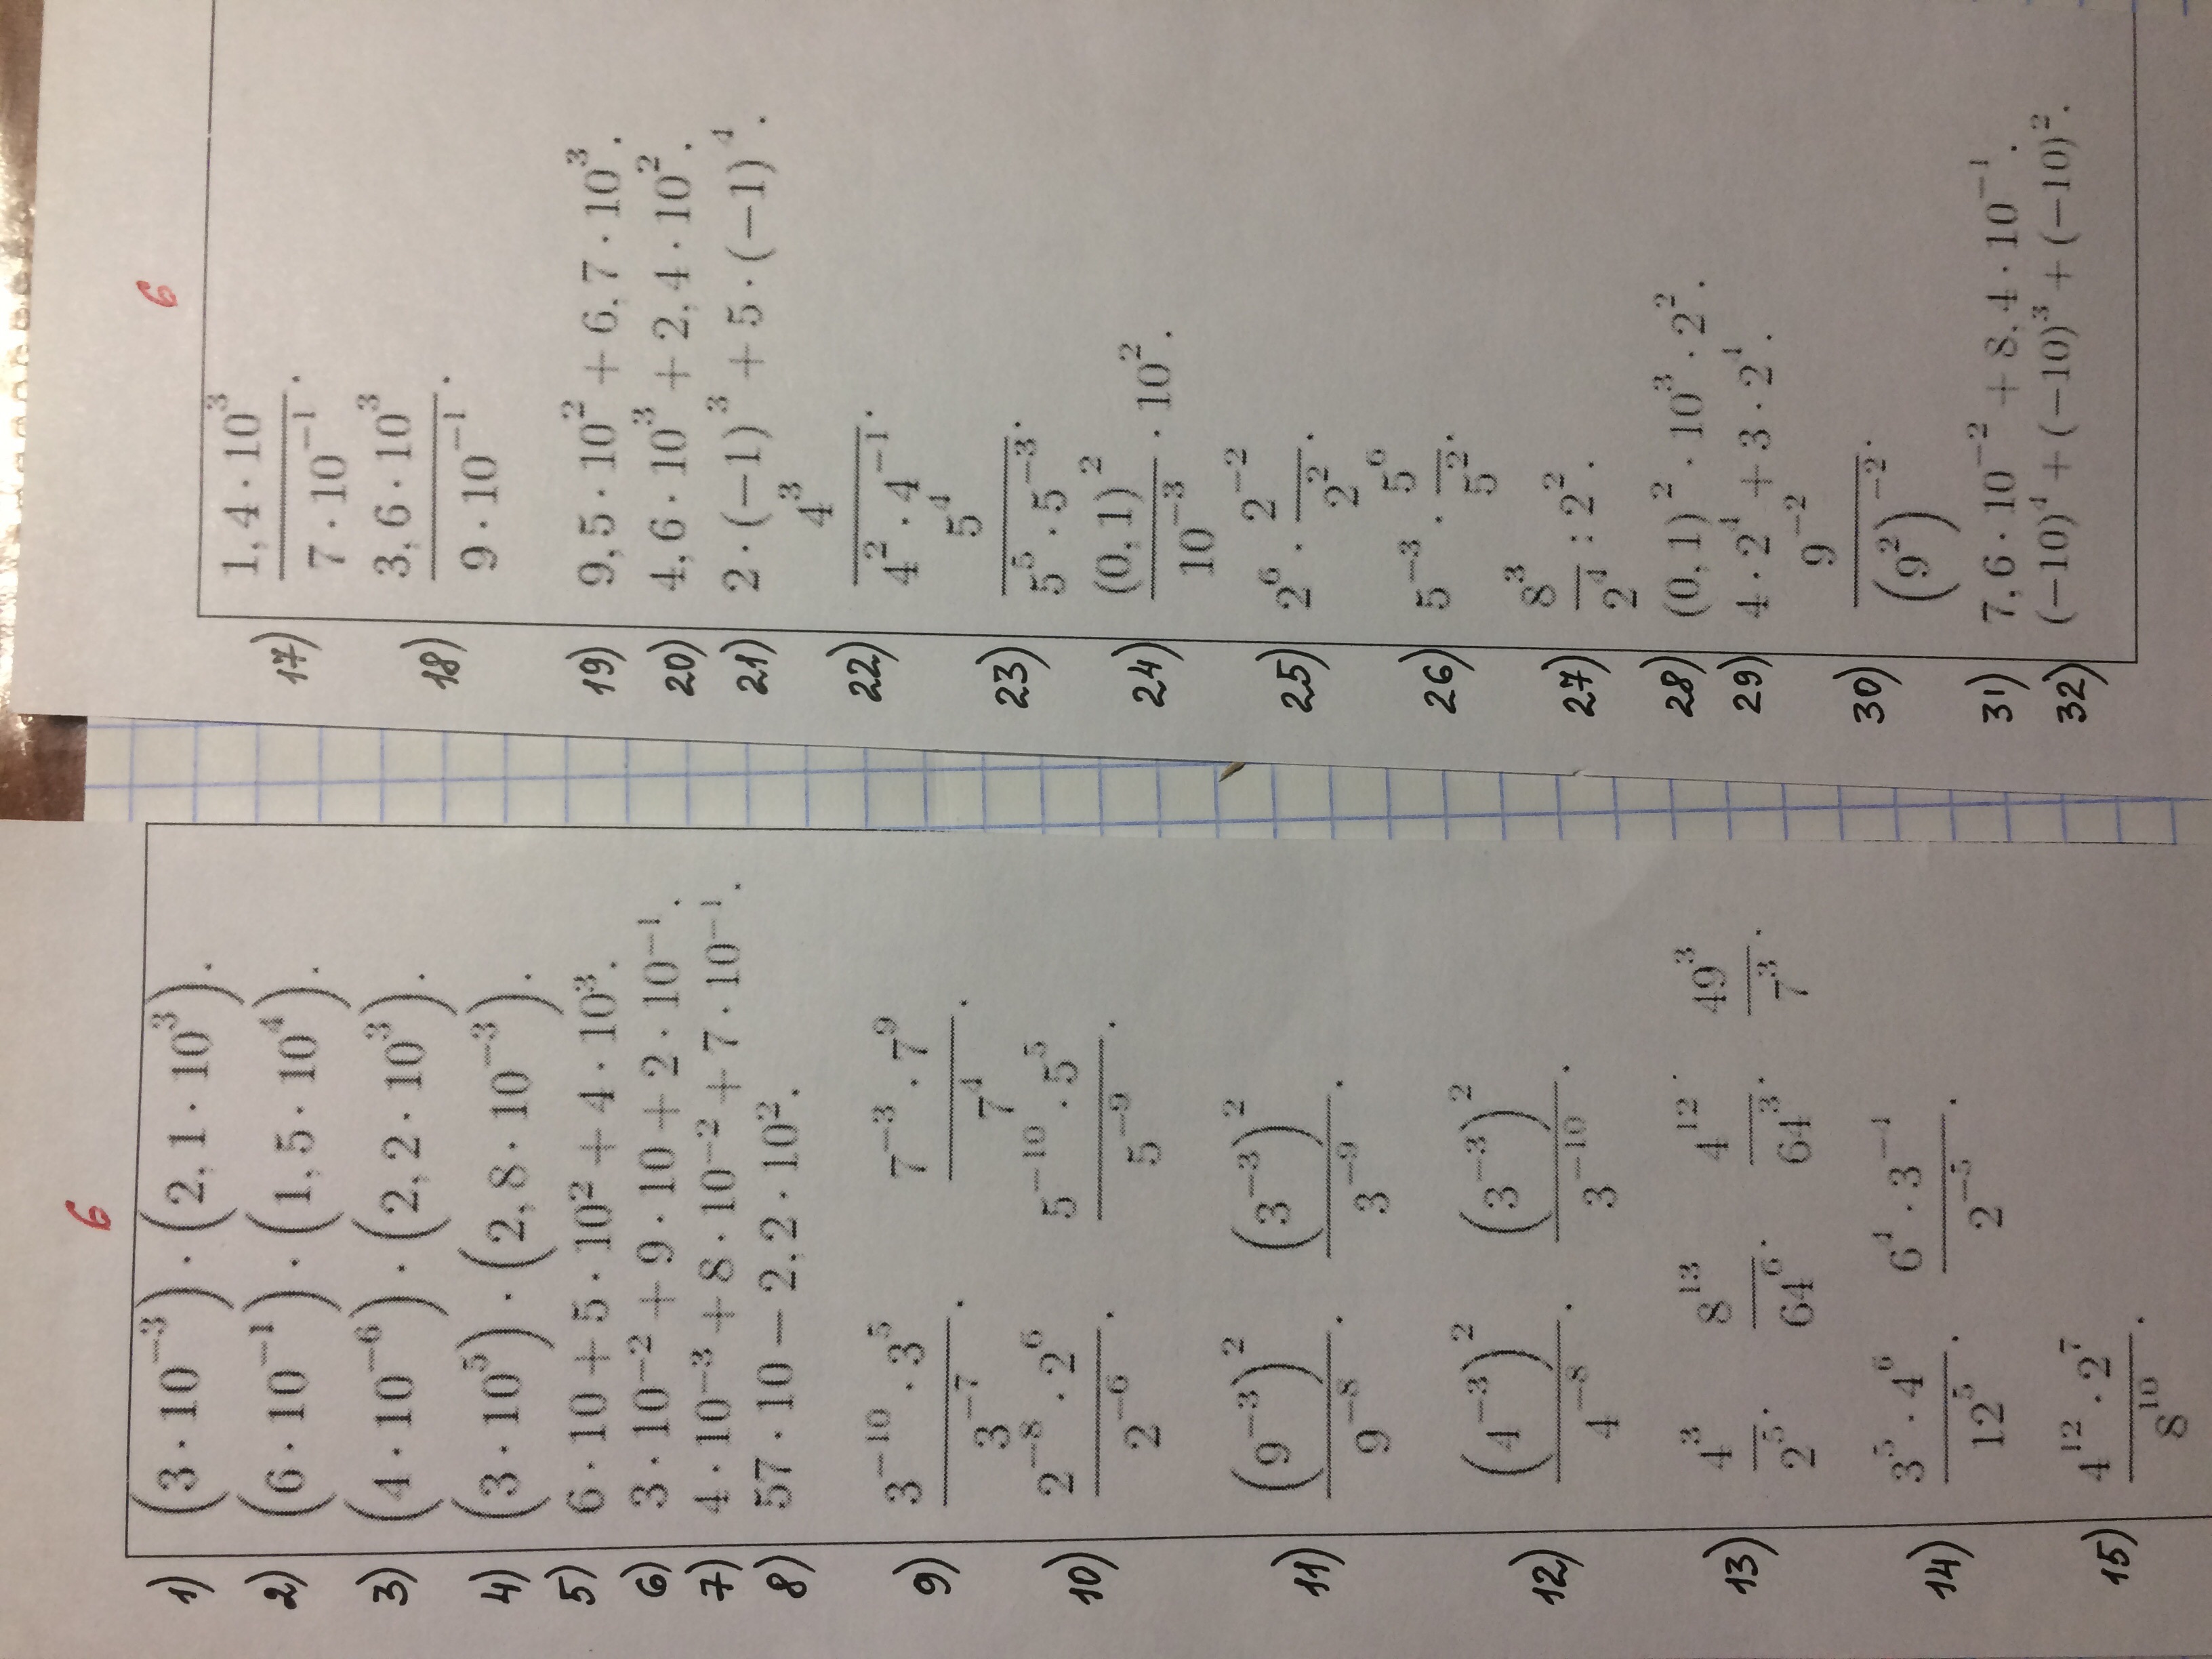 6
1) (3 · 10⁻³) · (2, 1 · 10³).
2) (6 · 10⁻¹) · (1, 5 · 10⁴).
3) (4 · 10⁻⁶) · (2, 2 · 10³).
4) (3 · 10⁵) · (2, 8 · 10⁻³).
5) 6 · 10 + 5 · 10² + 4 · 10³.
6) 3 · 10⁻² + 9 · 10 + 2 · 10⁻¹.
7) 4 · 10⁻³ + 8 · 10⁻² + 7 · 10⁻¹.
8) 57 · 10 − 2, 2 · 10².
9) (3⁻¹⁰ · 3⁵)/3⁻⁷. (7⁻³ · 7⁹)/7⁴.
10) (2⁻⁸ · 2⁶)/2⁻⁶. (5⁻¹⁰ · 5⁵)/5⁻⁹.
11) (9⁻³)²/9⁻⁸. (3⁻³)²/3⁻⁹.
12) (4⁻³)²/4⁻⁸. (3⁻³)²/3⁻¹⁰.
13) 4³/2⁵. 8¹³/64⁶. 4¹²/64³. 49³/7³.
14) (3⁵ · 4⁶)/12⁵. (6⁴ · 3⁻⁴)/2⁻⁵.
15) (4¹² · 2⁷)/8¹⁰.
6
17) (1, 4 · 10³)/(7 · 10⁻¹).
18) (3, 6 · 10³)/(9 · 10⁻¹).
19) 9, 5 · 10² + 6, 7 · 10³.
20) 4, 6 · 10³ + 2, 4 · 10².
21) 2 · (−1)³ + 5 · (−1)⁴.
22) 4³/(4² · 4⁻¹).
23) 5⁴/(5⁵ · 5⁻³).
24) (0, 1)²/10⁻³ · 10².
25) 2⁶ · 2⁻²/2².
26) 5⁻³ · 5⁶/5².
27) 8³/2⁴ : 2².
28) (0, 1)² · 10³ · 2².
29) 4 · 2⁴ + 3 · 2⁴.
30) 9⁻²/(9²)⁻².
31) 7, 6 · 10⁻² + 8, 4 · 10⁻¹.
32) (−10)⁴ + (−10)³ + (−10)².